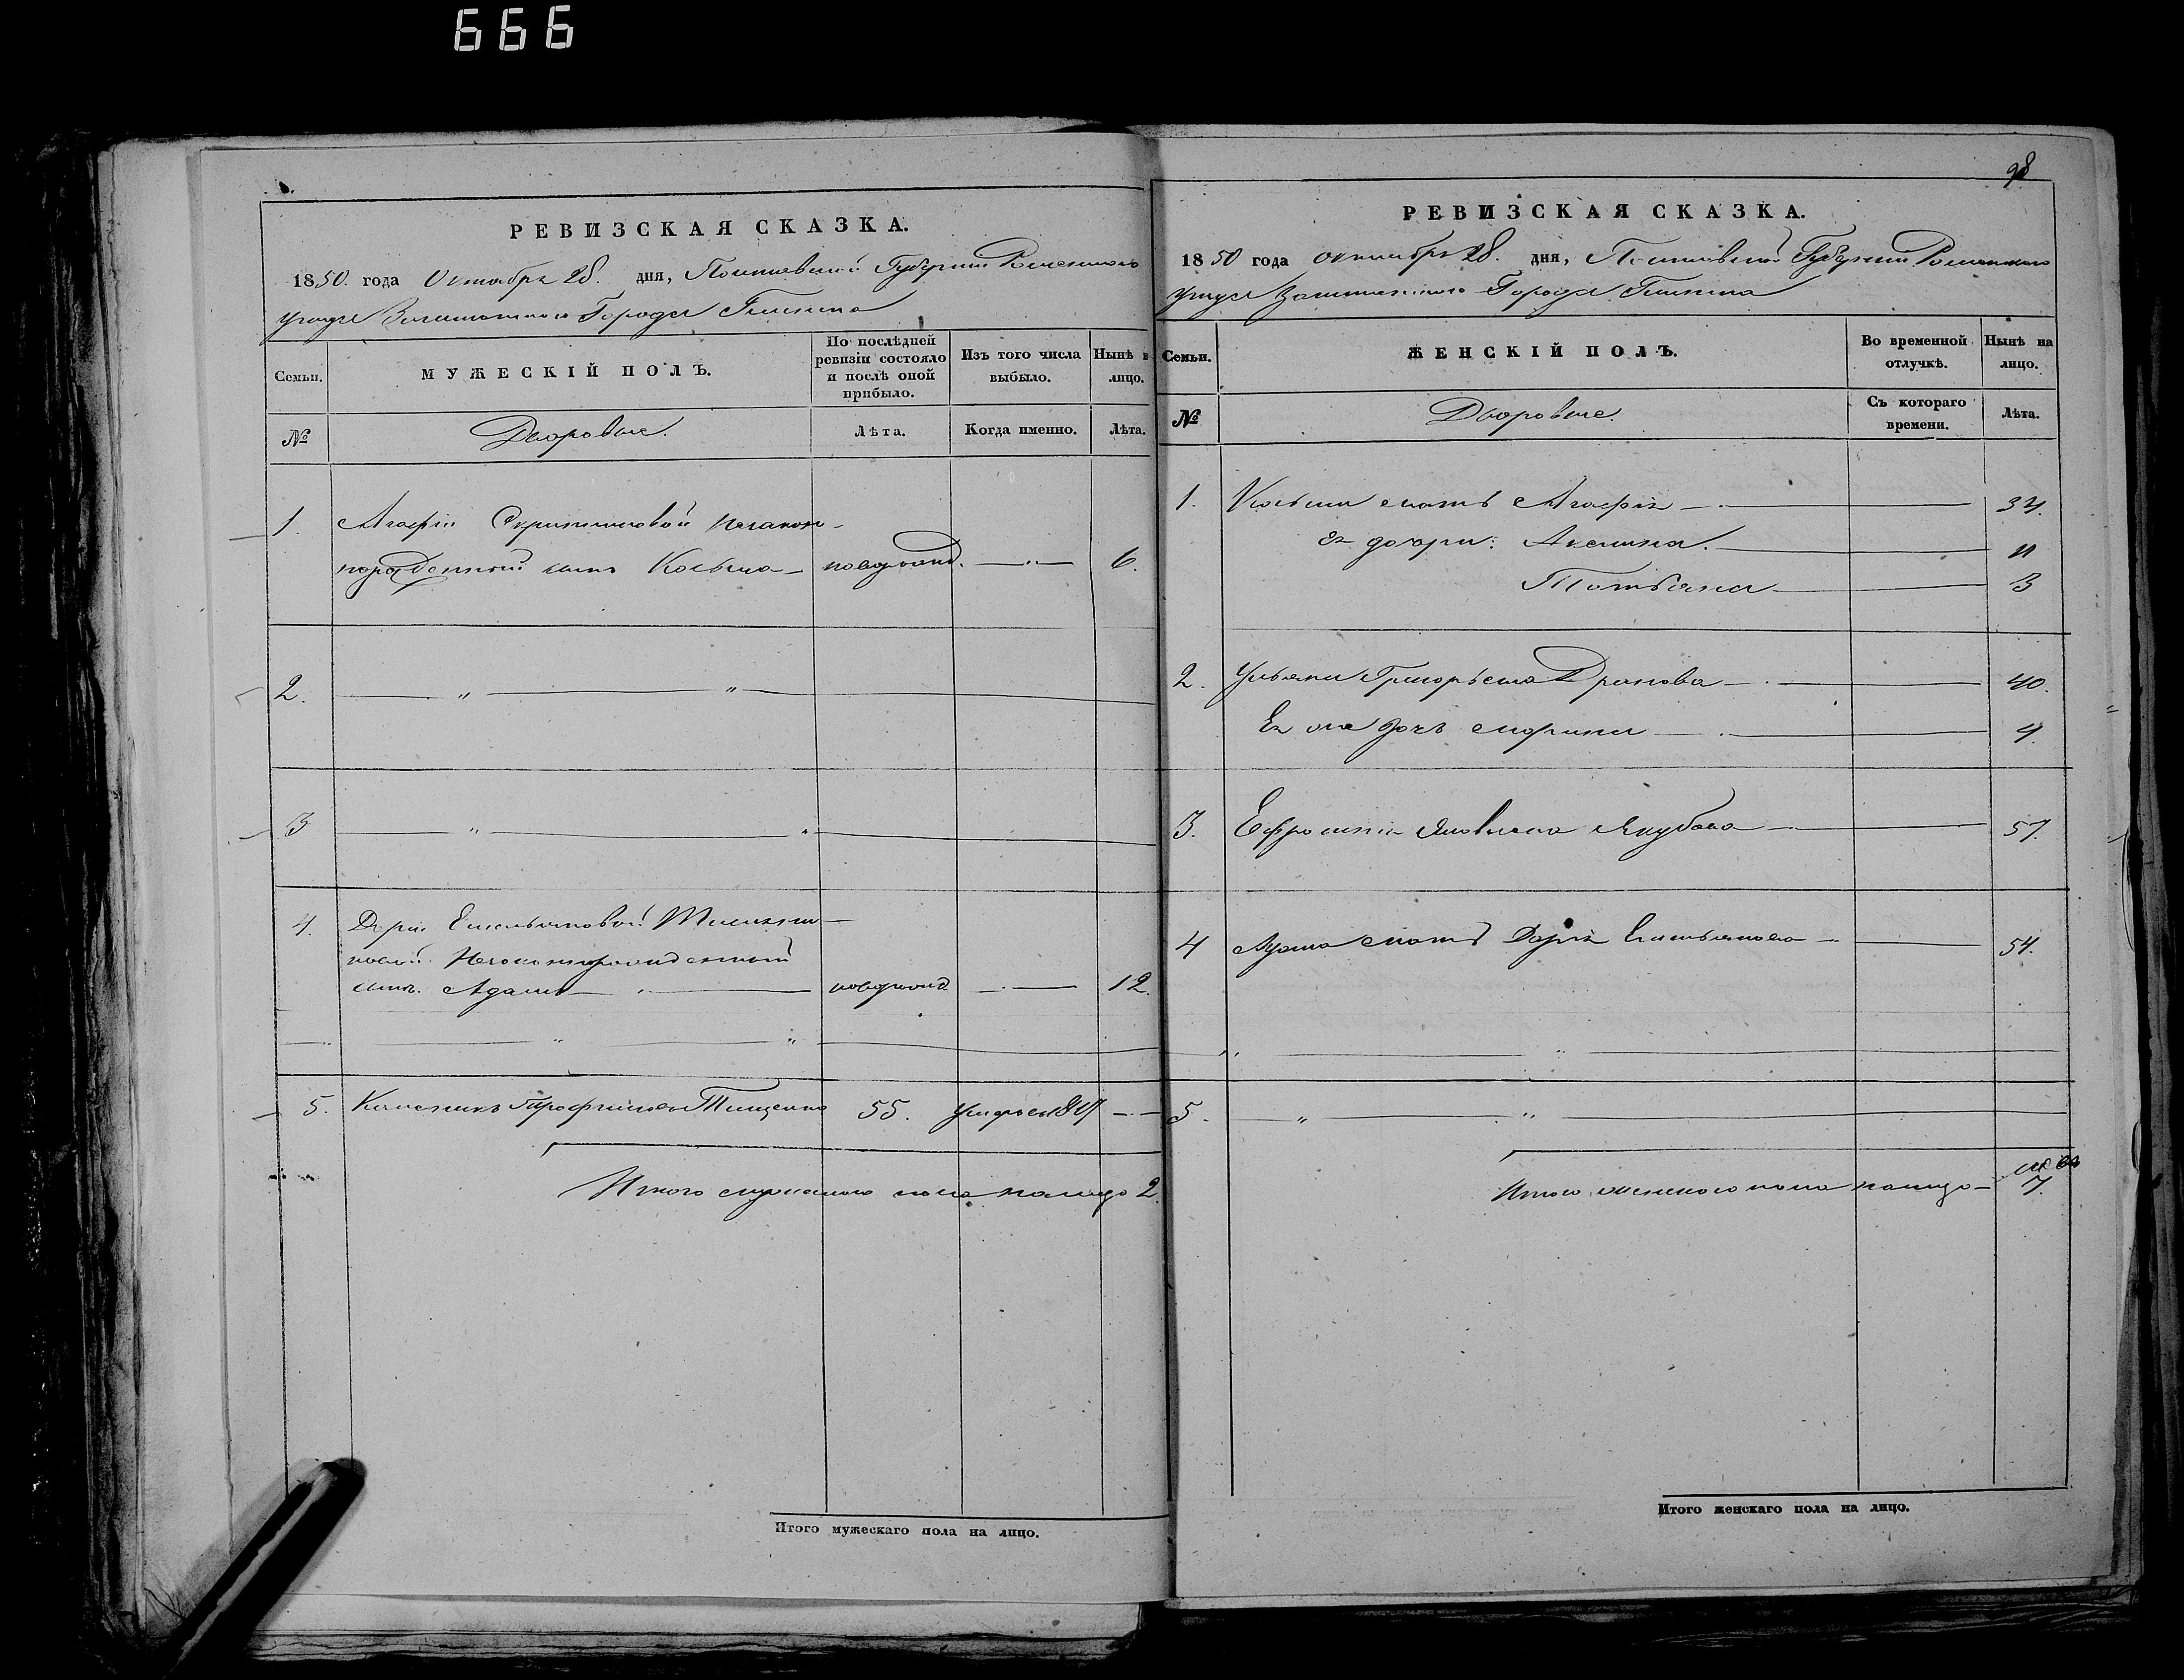 666
РЕВИЗСКАЯ СКАЗКА.
1850. года Октября 28. дня, Полтавской Губернии Роменского
уезда Заштатного Города Глинска
Семьи.
МУЖЕСКІЙ ПОЛЪ.
По послѣдней ревизіи состояло и послѣ оной прибыло.
Изъ того числа выбыло.
Нынѣ н лицо.
№
Дворовые.
Лѣта.
Когда именно.
Лѣта.
1. Агафіи незакон-
норожденный сынъ Козьма новорожд. 6.
2.
3
4. Дарьи Емельяновой
Незаконнорожденный
сынъ Адамъ новорожд. 12.
5. Трофимовъ Тищенко 55. умеръ —
Итого мужеского пола налицо 2.
Итого мужескаго пола на лицо.
98
РЕВИЗСКАЯ СКАЗКА.
1850 года октября 28. дня, Полтавской Губернии Роменского
уезда Заштатного Города Глинска
Семьи.
ЖЕНСКІЙ ПОЛЪ.
Во временной отлучкѣ.
Нынѣ на лицо.
№
Дворовые
Съ котораго времени.
Лѣта.
1. Козьмы мать Агафія 34.
Ея дочери: Акелина. 11
Татьяна 3
2. Ульяна Григорьева 40.
Ея же дочь Марина 4.
3. Ефросинія Якубова 57.
4 Адама мать Дарья Емельянова 54.
5.
Итого женского пола налицо 7.
Итого женскаго пола на лицо.